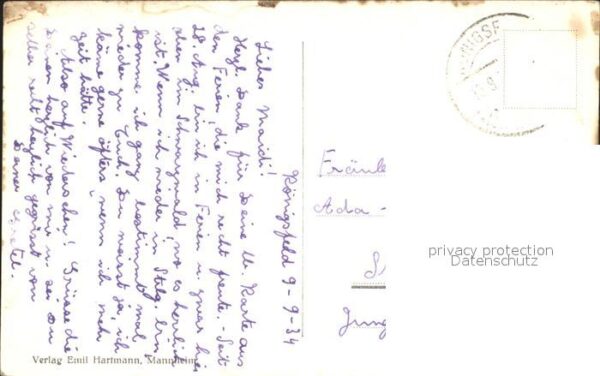 Königsfeld 9-9-34
Liebes Maidi!
Herzl. Dank für Deine lb. Karte aus
den Ferien, die mich recht freute. - Seit
28. Aug. bin ich in Ferien u. zwar hier
im Schwarzwald, wo es herrlich
ist. Wenn ich wieder in Stutg. bin
komme ich ganz bestimmt mal
wieder zu Euch. Du weisst ja, ich
käme gerne öfters, wenn ich mehr
Zeit hätte.
Also auf Wiedersehen! Grüsse die
Deinen herzlich von mir u. sei Du
selber recht herzlich gegrüsst von
Deiner
Fräule
Ada -
S
Jung
privacy protection
Datenschutz
Verlag Emil Hartmann, Mannheim